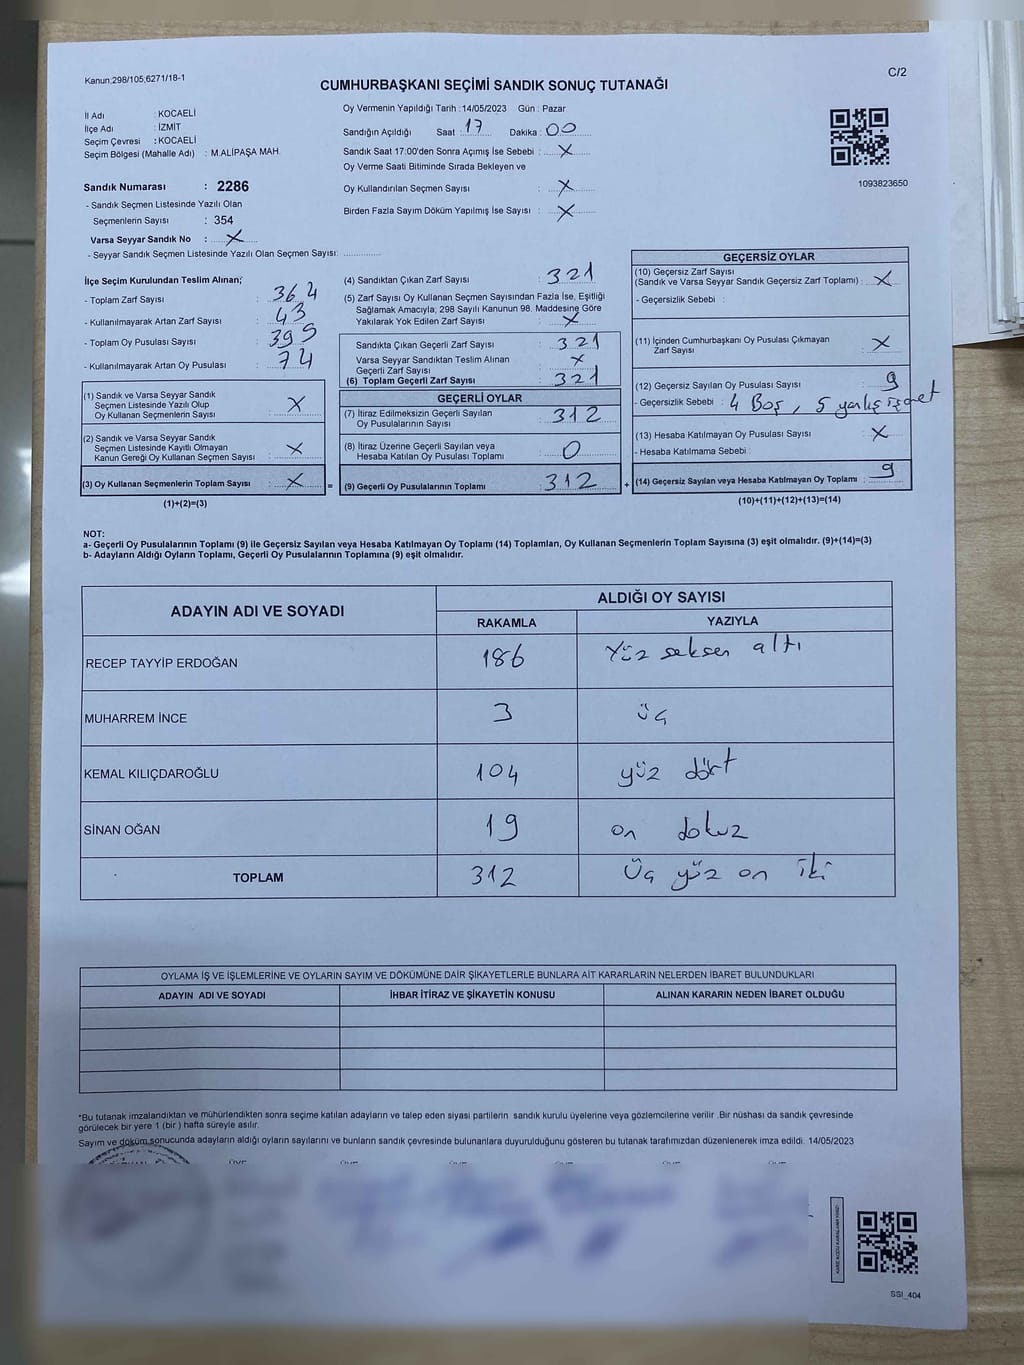 Kanun;298/105;6271/18-1
C/2
CUMHURBAŞKANI SEÇİMİ SANDIK SONUÇ TUTANAĞI
İl Adı : KOCAELİ
İlçe Adı : İZMİT
Seçim Çevresi : KOCAELİ
Seçim Bölgesi (Mahalle Adı) : M.ALİPAŞA MAH.
Sandık Numarası : 2286
- Sandık Seçmen Listesinde Yazılı Olan
Seçmenlerin Sayısı : 354
Varsa Seyyar Sandık No : X
- Seyyar Sandık Seçmen Listesinde Yazılı Olan Seçmen Sayısı:
Oy Vermenin Yapıldığı Tarih :14/05/2023 Gün : Pazar
Sandığın Açıldığı Saat : 17 Dakika : 00
Sandık Saat 17:00'den Sonra Açımış İse Sebebi : X
Oy Verme Saati Bitiminde Sırada Bekleyen ve
Oy Kullandırılan Seçmen Sayısı : X
Birden Fazla Sayım Döküm Yapılmış İse Sayısı : X
1093823650
İlçe Seçim Kurulundan Teslim Alınan;
- Toplam Zarf Sayısı : 364
- Kullanılmayarak Artan Zarf Sayısı : 43
- Toplam Oy Pusulası Sayısı : 395
- Kullanılmayarak Artan Oy Pusulası : 74
(1) Sandık ve Varsa Seyyar Sandık
Seçmen Listesinde Yazılı Olup
Oy Kullanan Seçmenlerin Sayısı : X
(2) Sandık ve Varsa Seyyar Sandık
Seçmen Listesinde Kayıtlı Olmayan
Kanun Gereği Oy Kullanan Seçmen Sayısı : X
(3) Oy Kullanan Seçmenlerin Toplam Sayısı : X =
(1)+(2)=(3)
(4) Sandıktan Çıkan Zarf Sayısı : 321
(5) Zarf Sayısı Oy Kullanan Seçmen Sayısından Fazla İse, Eşitliği
Sağlamak Amacıyla; 298 Sayılı Kanunun 98. Maddesine Göre
Yakılarak Yok Edilen Zarf Sayısı : X
Sandıkta Çıkan Geçerli Zarf Sayısı : 321
Varsa Seyyar Sandıktan Teslim Alınan
Geçerli Zarf Sayısı : X
(6) Toplam Geçerli Zarf Sayısı : 321
GEÇERLİ OYLAR
(7) İtiraz Edilmeksizin Geçerli Sayılan
Oy Pusulalarının Sayısı : 312
(8) İtiraz Üzerine Geçerli Sayılan veya
Hesaba Katılan Oy Pusulası Toplamı : 0
(9) Geçerli Oy Pusulalarının Toplamı : 312 +
GEÇERSİZ OYLAR
(10) Geçersiz Zarf Sayısı
(Sandık ve Varsa Seyyar Sandık Geçersiz Zarf Toplamı) : X
- Geçersizlik Sebebi :
(11) İçinden Cumhurbaşkanı Oy Pusulası Çıkmayan
Zarf Sayısı : X
(12) Geçersiz Sayılan Oy Pusulası Sayısı : 9
- Geçersizlik Sebebi : 4 Boş, 5 yanlış işaret
(13) Hesaba Katılmayan Oy Pusulası Sayısı : X
- Hesaba Katılmama Sebebi :
(14) Geçersiz Sayılan veya Hesaba Katılmayan Oy Toplamı : 9
(10)+(11)+(12)+(13)=(14)
NOT:
a- Geçerli Oy Pusulalarının Toplamı (9) ile Geçersiz Sayılan veya Hesaba Katılmayan Oy Toplamı (14) Toplamları, Oy Kullanan Seçmenlerin Toplam Sayısına (3) eşit olmalıdır. (9)+(14)=(3)
b- Adayların Aldığı Oyların Toplamı, Geçerli Oy Pusulalarının Toplamına (9) eşit olmalıdır.
ADAYIN ADI VE SOYADI
ALDIĞI OY SAYISI
RAKAMLA YAZIYLA
RECEP TAYYİP ERDOĞAN 186 Yüz seksen altı
MUHARREM İNCE 3 üç
KEMAL KILIÇDAROĞLU 104 yüz dört
SİNAN OĞAN 19 on dokuz
TOPLAM 312 Üç yüz on iki
OYLAMA İŞ VE İŞLEMLERİNE VE OYLARIN SAYIM VE DÖKÜMÜNE DAİR ŞİKAYETLERLE BUNLARA AİT KARARLARIN NELERDEN İBARET BULUNDUKLARI
ADAYIN ADI VE SOYADI İHBAR İTİRAZ VE ŞİKAYETİN KONUSU ALINAN KARARIN NEDEN İBARET OLDUĞU
*Bu tutanak imzalandıktan ve mühürlendikten sonra seçime katılan adayların ve talep eden siyasi partilerin sandık kurulu üyelerine veya gözlemcilerine verilir .Bir nüshası da sandık çevresinde
görülecek bir yere 1 (bir ) hafta süreyle asılır.
Sayım ve döküm sonucunda adayların aldığı oyların sayılarını ve bunların sandık çevresinde bulunanlara duyurulduğunu gösteren bu tutanak tarafımızdan düzenlenerek imza edildi. 14/05/2023
SSI_404